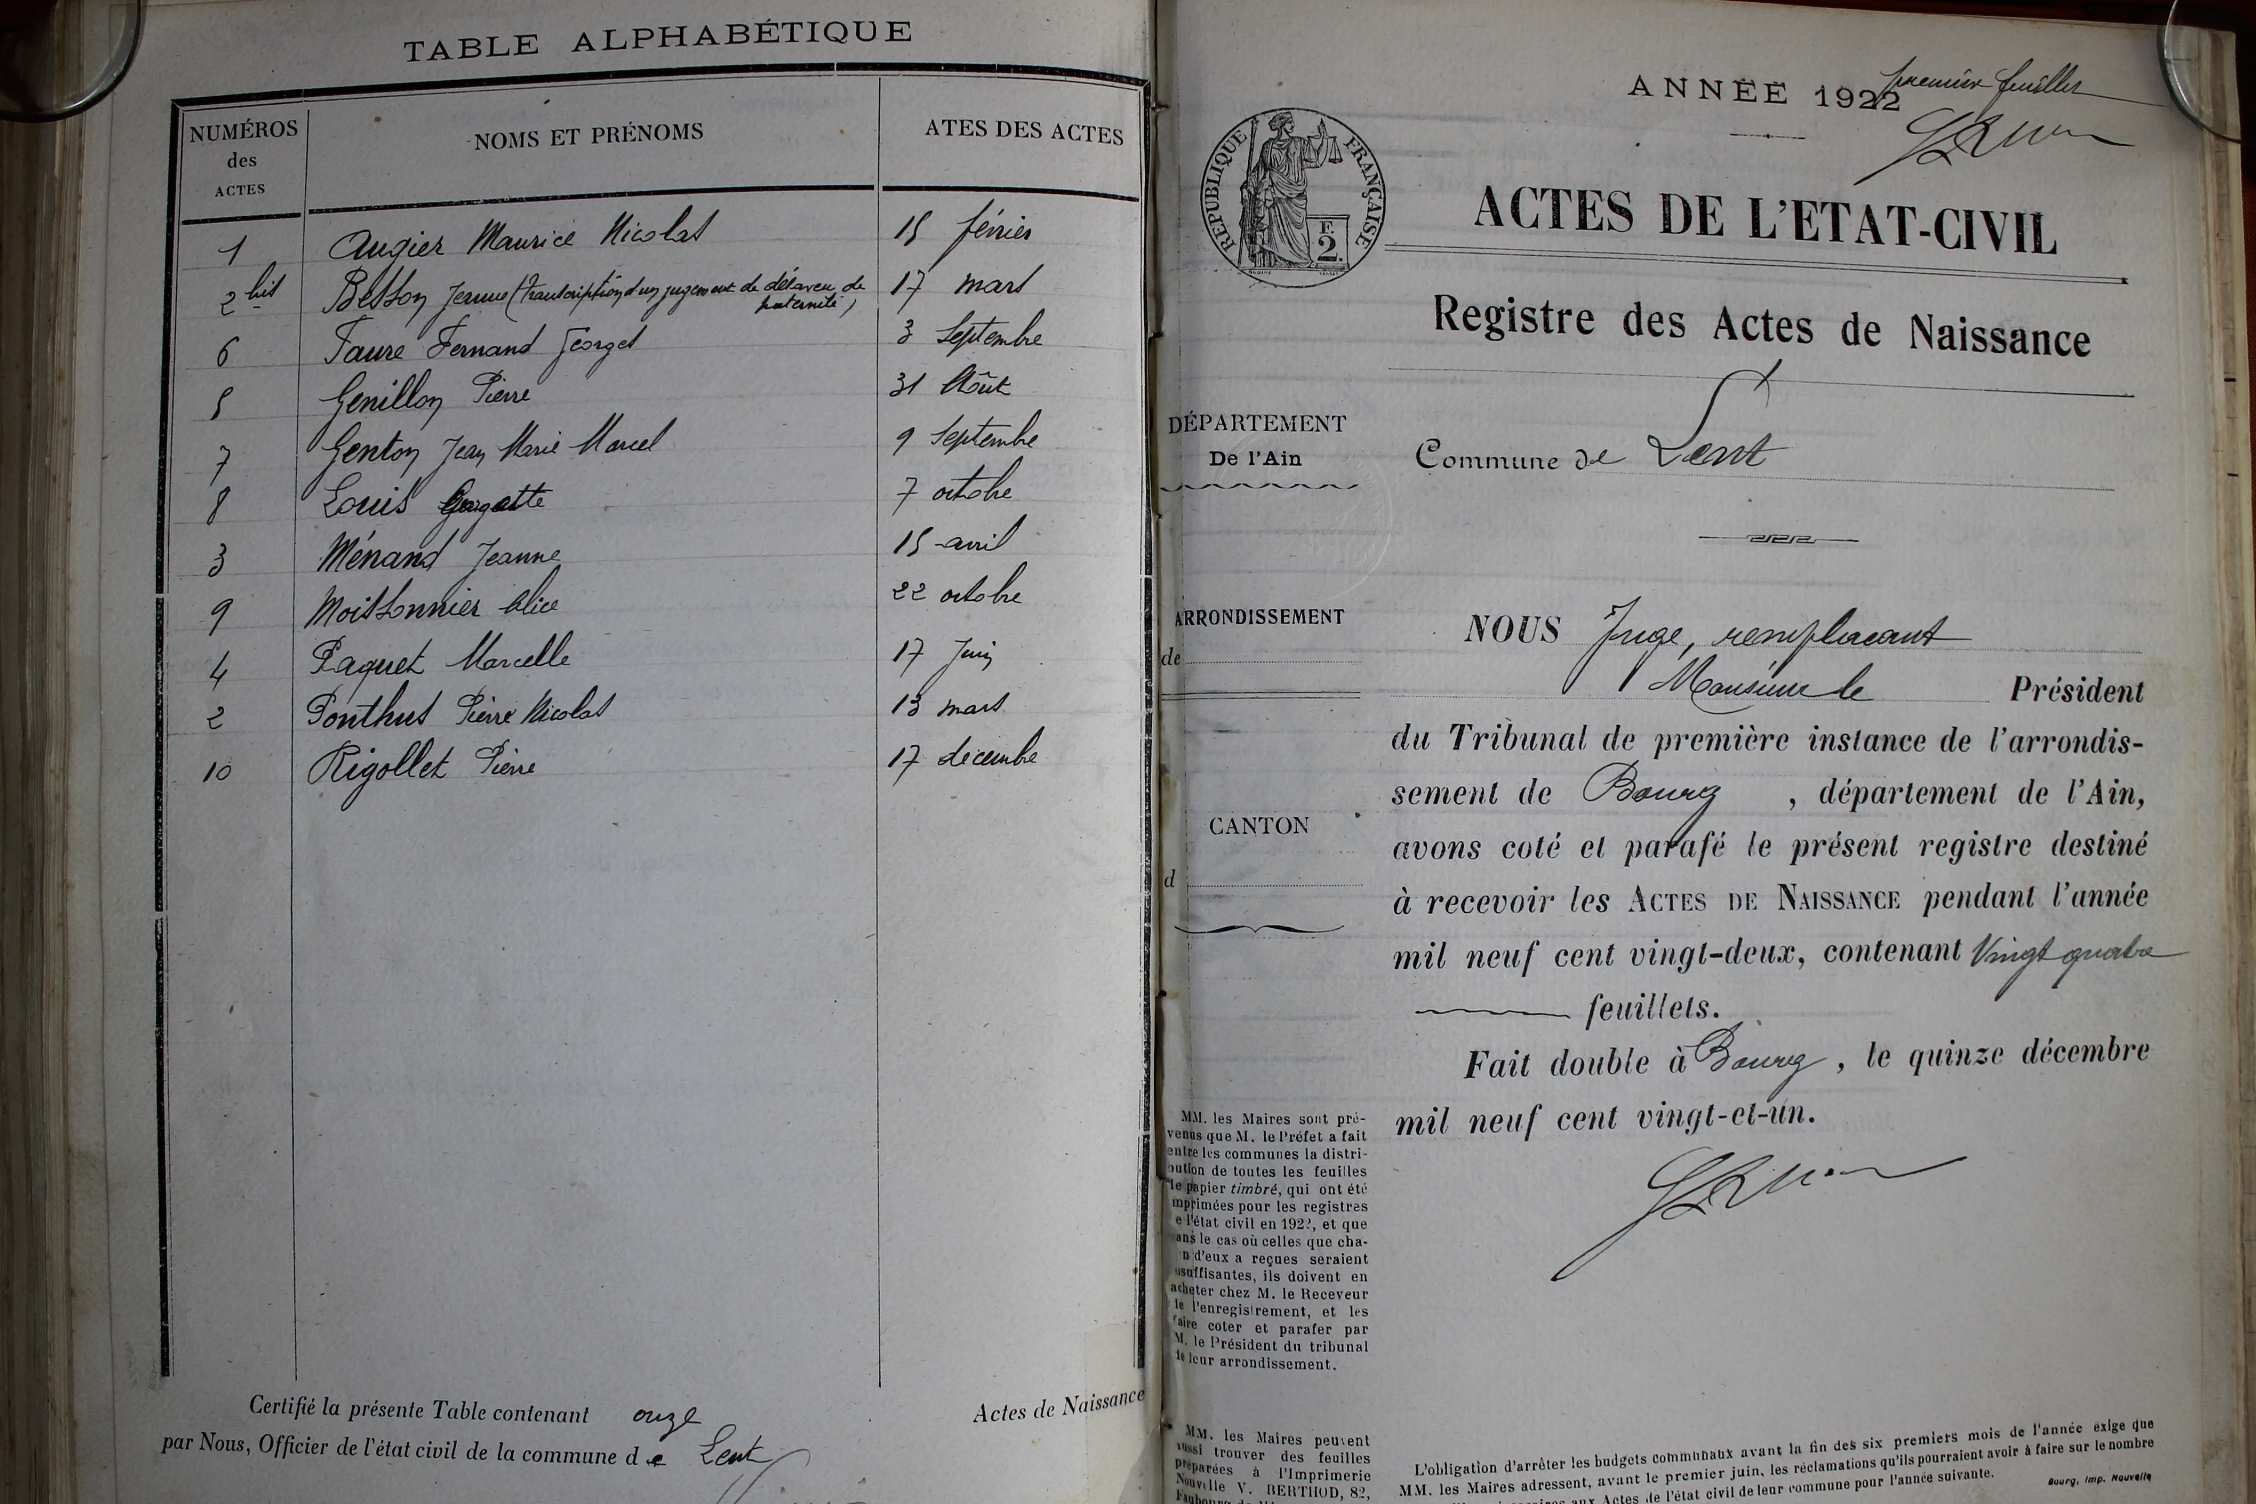 TABLE ALPHABÉTIQUE
NUMÉROS
des
ACTES
NOMS ET PRÉNOMS
ATES DES ACTES
1 Augier Maurice Nicolas 15 février
2 bis Besson Jeanne (transcription d'un jugement de désaveu de paternité) 17 mars
6 Faure Fernand Georges 3 Septembre
5 Genillon Pierre 31 Août
7 Genton Jean Marie Marcel 9 Septembre
8 Louis 7 octobre
3 Ménand Jeanne 15 avril
9 Moissonnier Alice 22 octobre
4 Paquet Marcelle 17 Juin
2 Ponthus Pierre Nicolas 13 mars
10 Rigollet Pierre 17 décembre
Certifié la présente Table contenant onze Actes de Naissance
par Nous, Officier de l'état civil de la commune de Lent
premier feuillet
ANNÉE 1922
RÉPUBLIQUE FRANÇAISE
F.
2.
ACTES DE L'ETAT-CIVIL
Registre des Actes de Naissance
DÉPARTEMENT
De l'Ain
Commune de Lent
ARRONDISSEMENT
de
CANTON
d
NOUS Juge, remplacant
Monsieur le Président
du Tribunal de première instance de l'arrondis-
sement de Bourg, département de l'Ain,
avons coté et parafé le présent registre destiné
à recevoir les ACTES DE NAISSANCE pendant l'année
mil neuf cent vingt-deux, contenant Vingt quatre
feuillets.
Fait double à Bourg, le quinze décembre
mil neuf cent vingt-et-un.
MM. les Maires sont pré-
venus que M. le Préfet a fait
entre les communes la distri-
bution de toutes les feuilles
de papier timbré, qui ont été
imprimées pour les registres
e l'état civil en 1922, et que
ans le cas où celles que cha-
n d'eux a reçues seraient
nsuffisantes, ils doivent en
acheter chez M. le Receveur
le l'enregistrement, et les
faire coter et parafer par
M. le Président du tribunal
de leur arrondissement.
MM. les Maires peuvent
aussi trouver des feuilles
préparées à l'Imprimerie
Nouvelle V. BERTHOD, 82,
L'obligation d'arrêter les budgets communaux avant la fin des six premiers mois de l'année exige que
MM. les Maires adressent, avant le premier juin, les réclamations qu'ils pourraient avoir à faire sur le nombre
aux Actes de l'état civil de leur commune pour l'année suivante.
Bourg, Imp. Nouvelle